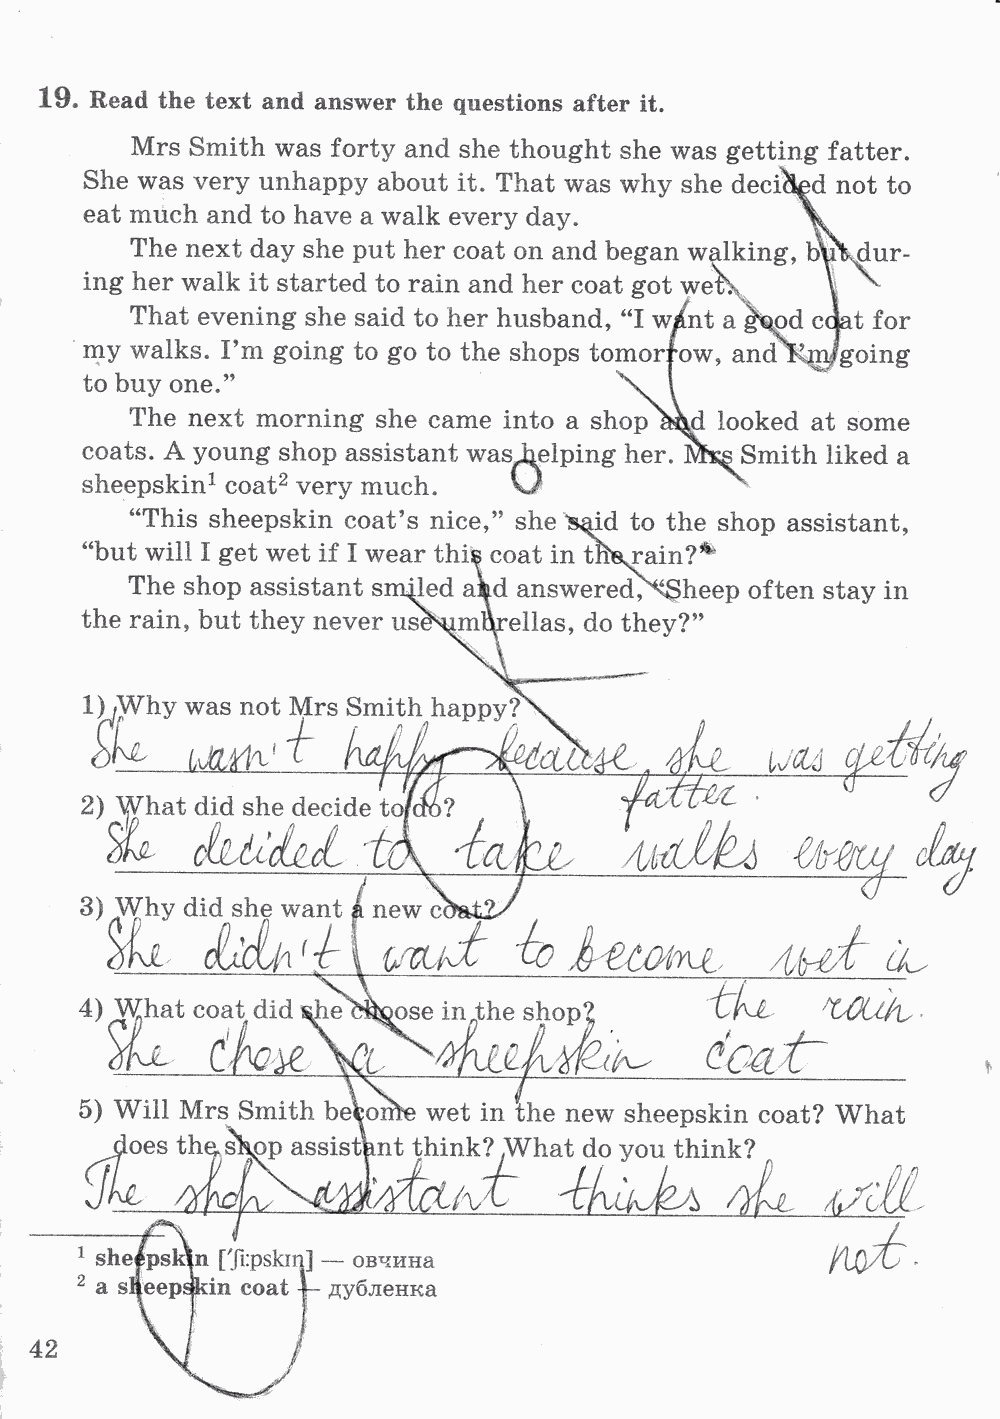 19. Read the text and answer the questions after it.
Mrs Smith was forty and she thought she was getting fatter.
She was very unhappy about it. That was why she decided not to
eat much and to have a walk every day.
The next day she put her coat on and began walking, but dur-
ing her walk it started to rain and her coat got wet.
That evening she said to her husband, “I want a good coat for
my walks. I’m going to go to the shops tomorrow, and I’m going
to buy one.”
The next morning she came into a shop and looked at some
coats. A young shop assistant was helping her. Mrs Smith liked a
sheepskin¹ coat² very much.
“This sheepskin coat’s nice,” she said to the shop assistant,
“but will I get wet if I wear this coat in the rain?”
The shop assistant smiled and answered, “Sheep often stay in
the rain, but they never use umbrellas, do they?”
1) Why was not Mrs Smith happy?
She wasn't happy because she was getting
fatter.
2) What did she decide to do?
She decided to take walks every day
3) Why did she want a new coat?
She didn't want to become wet in
the rain.
4) What coat did she choose in the shop?
She chose a sheepskin coat
5) Will Mrs Smith become wet in the new sheepskin coat? What
does the shop assistant think? What do you think?
The shop assistant thinks she will
not.
¹ sheepskin [ʹʃi:pskɪn] — овчина
² a sheepskin coat — дубленка
42